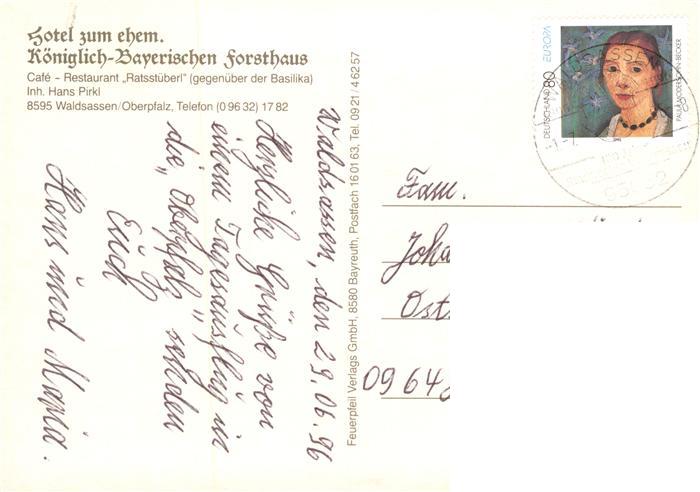 Hotel zum ehem.
Königlich-Bayerischen Forsthaus
Café – Restaurant „Ratsstüberl" (gegenüber der Basilika)
Inh. Hans Pirkl
8595 Waldsassen/Oberpfalz, Telefon (0 96 32) 17 82
Waldsassen, den 29.06.96
Herzliche Grüße von
einem Tagesausflug in
die „Oberpfalz" senden
Euch
Hans und Maria.
Feuerpfeil Verlags GmbH, 8580 Bayreuth, Postfach 16 01 63, Tel. 09 21 / 4 62 57
EUROPA
DEUTSCHLAND 80
PAULA MODERSOHN-BECKER
Fam.
Joha
Ost
0964